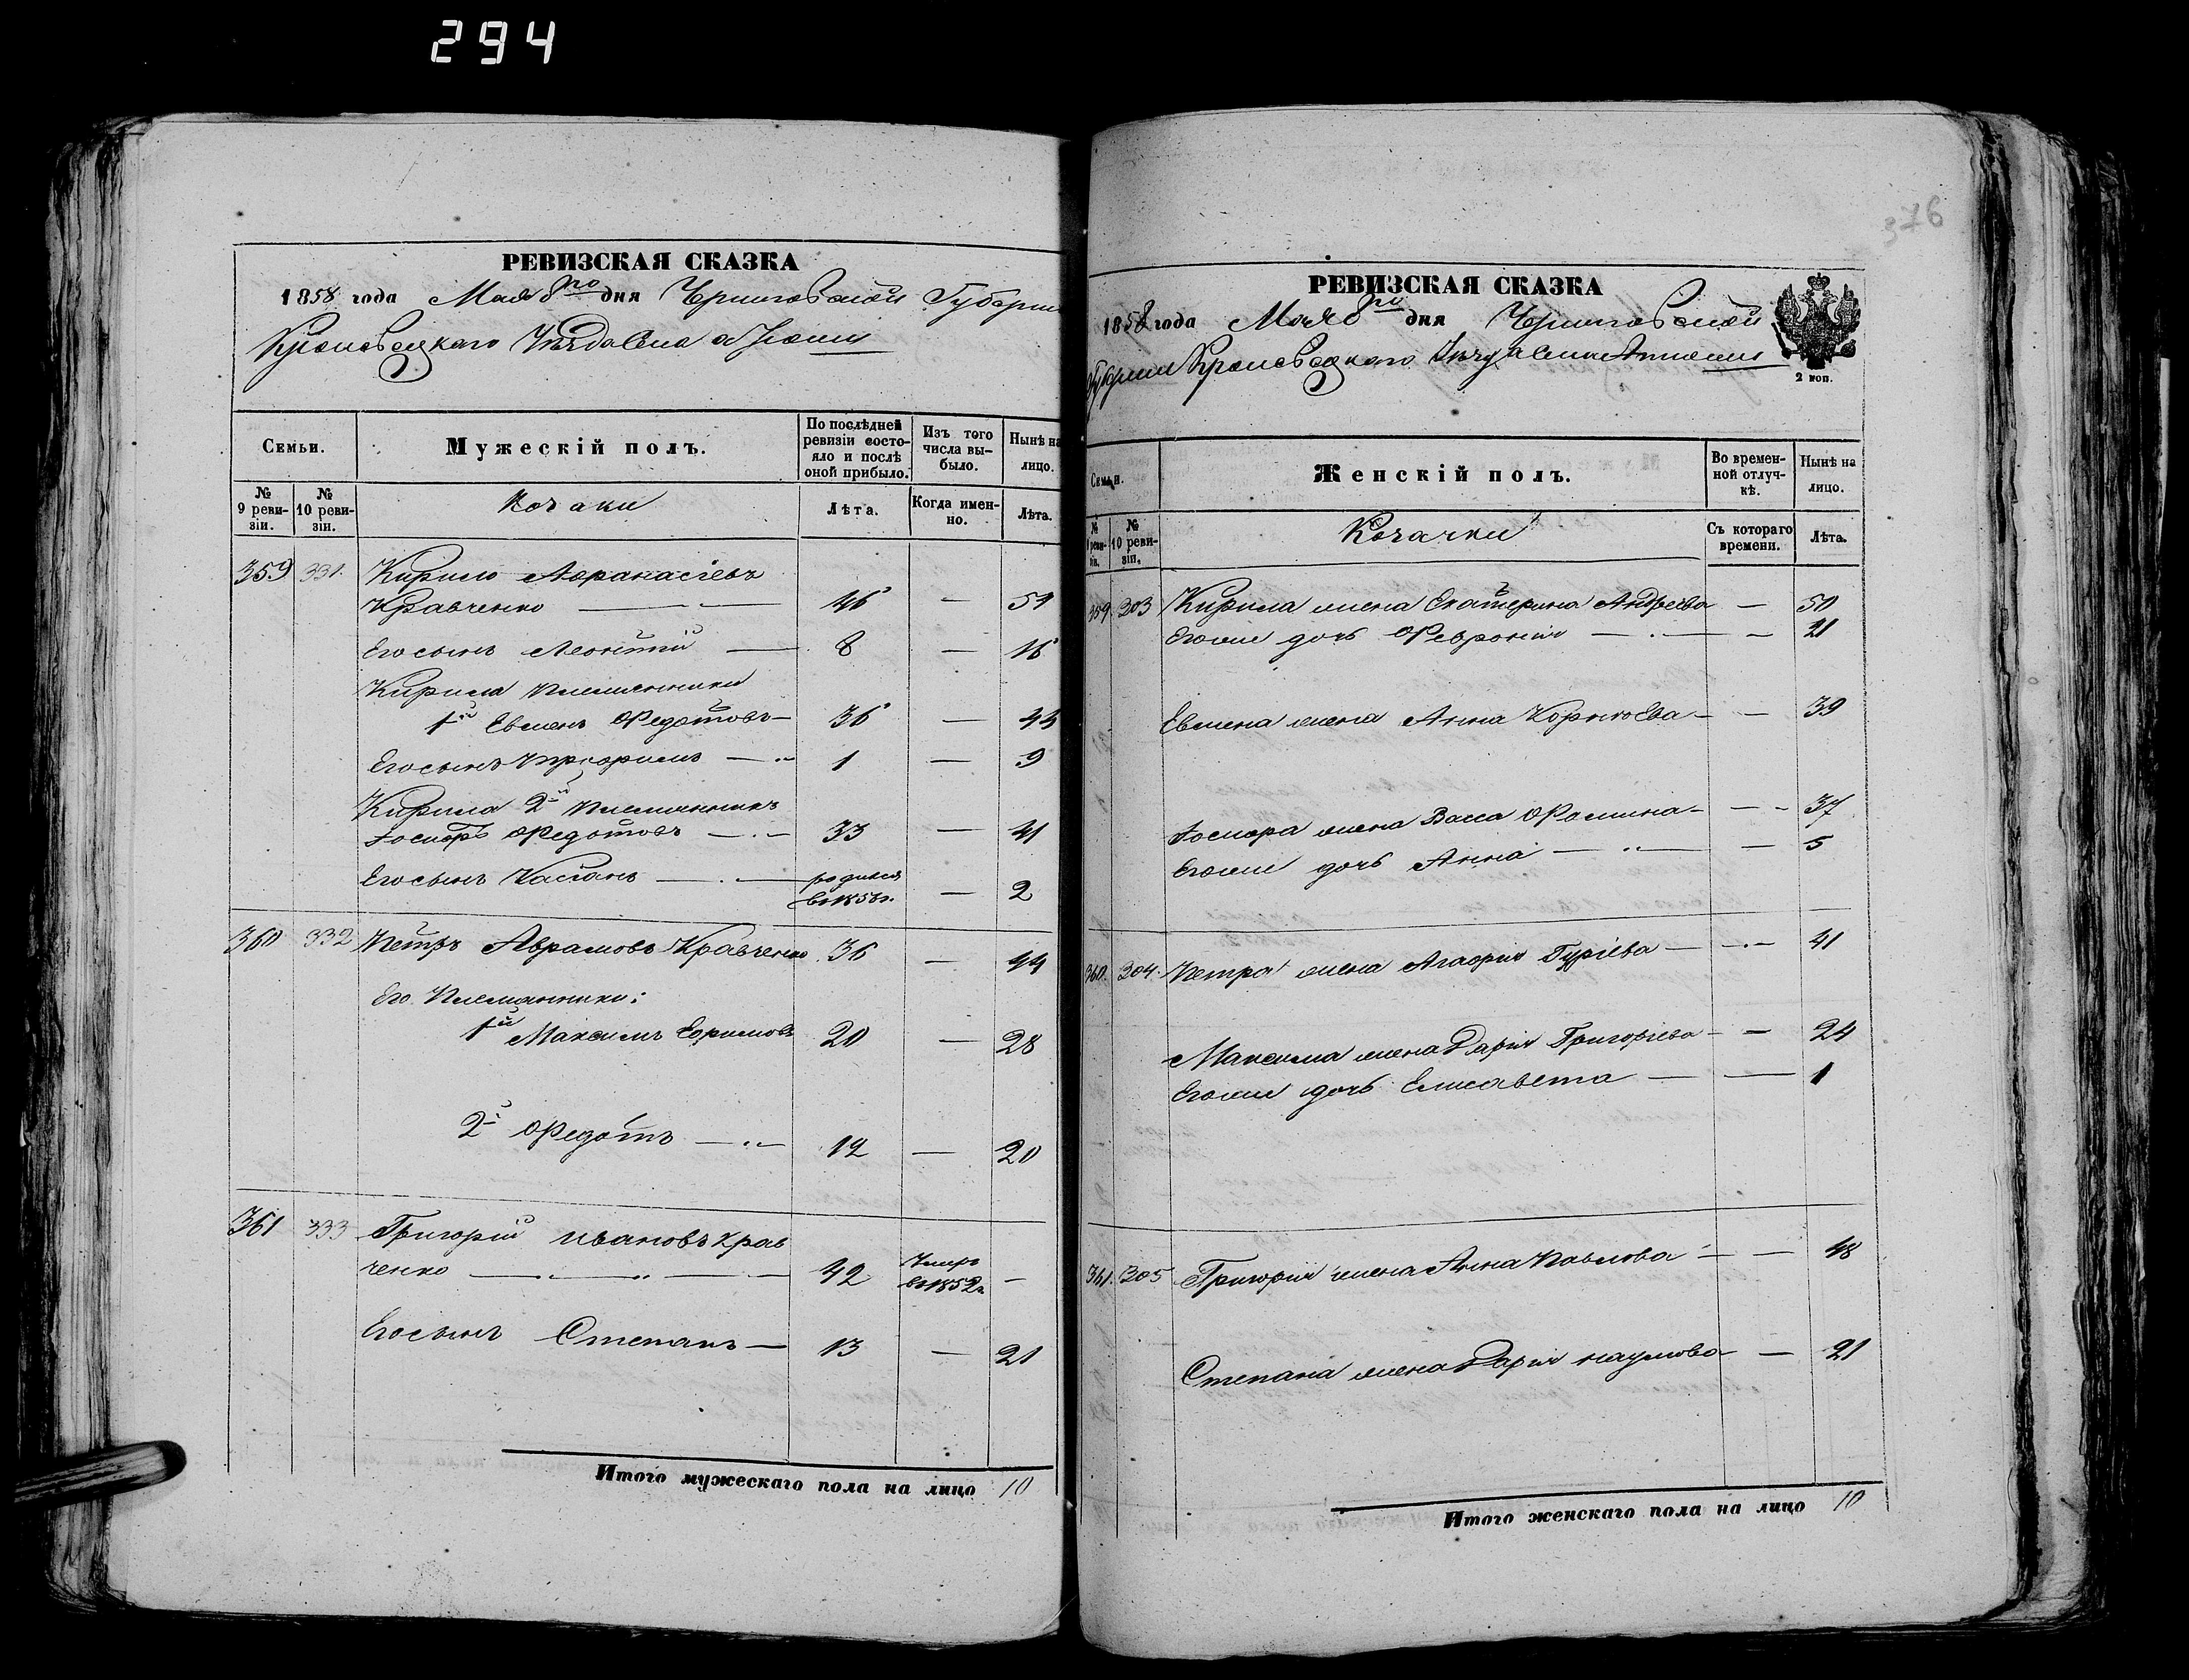 294
РЕВИЗСКАЯ СКАЗКА
1858 года Мая 8го дня Черниговской Губерни
Кролевецкаго Уѣзда
Семьи.
Мужескій полъ.
По послѣдней ревизіи состояло и послѣ оной прибыло.
Изъ того числа выбыло.
Нынѣ на лицо.
№ 9 ревизіи.
№ 10 ревизіи.
Козаки
Лѣта.
Когда именно.
Лѣта.
359 331. Кирило Афанасіевъ
Кравченко — 46 — 54
Его сынъ Леонтій — 8 — 16
Кирила племянники
1й Евменъ Федотовъ — 36 — 44
Его сынъ Трофимъ — 1 — 9
Кирила 2й племянникъ
Іосифъ Федотовъ — 33 — 41
Его сынъ Касіанъ — родился — 2
360 332 Петръ Аврамовъ Кравченко 36 — 44
Его племянники:
1й Максимъ Ефимовъ 20 — 28
2й Федотъ — 12 — 20
361 333 Григорій Ивановъ Крав
ченко — 42 Умеръ въ 1852г. —
Его сынъ Степанъ — 13 — 21
Итого мужескаго пола на лицо 10
376
РЕВИЗСКАЯ СКАЗКА
1858 года Мая 8го дня Черниговской
Губерніи Кролевецкаго Уѣзда
2 коп.
Семьи.
Женскій полъ.
Во временной отлучкѣ.
Нынѣ на лицо.
№ 10 ревизіи.
Козачки
Съ котораго времени.
Лѣта.
359. 303 Кирила жена Екатерина Андреева — 50
Его же дочь Февронія — 21
Евмена жена Анна Корнѣева — 39
Іосифа жена Васса Фомина — 37
Его же дочь Анна — 5
360. 304. Петра жена Агафія Гуріева — 41
Максима жена Дарія Григоріева — 24
Его же дочь Елисавета — 1
361. 305 Григорія жена Анна Павлова — 48
Степана жена Дарія Наумова — 21
Итого женскаго пола на лицо 10